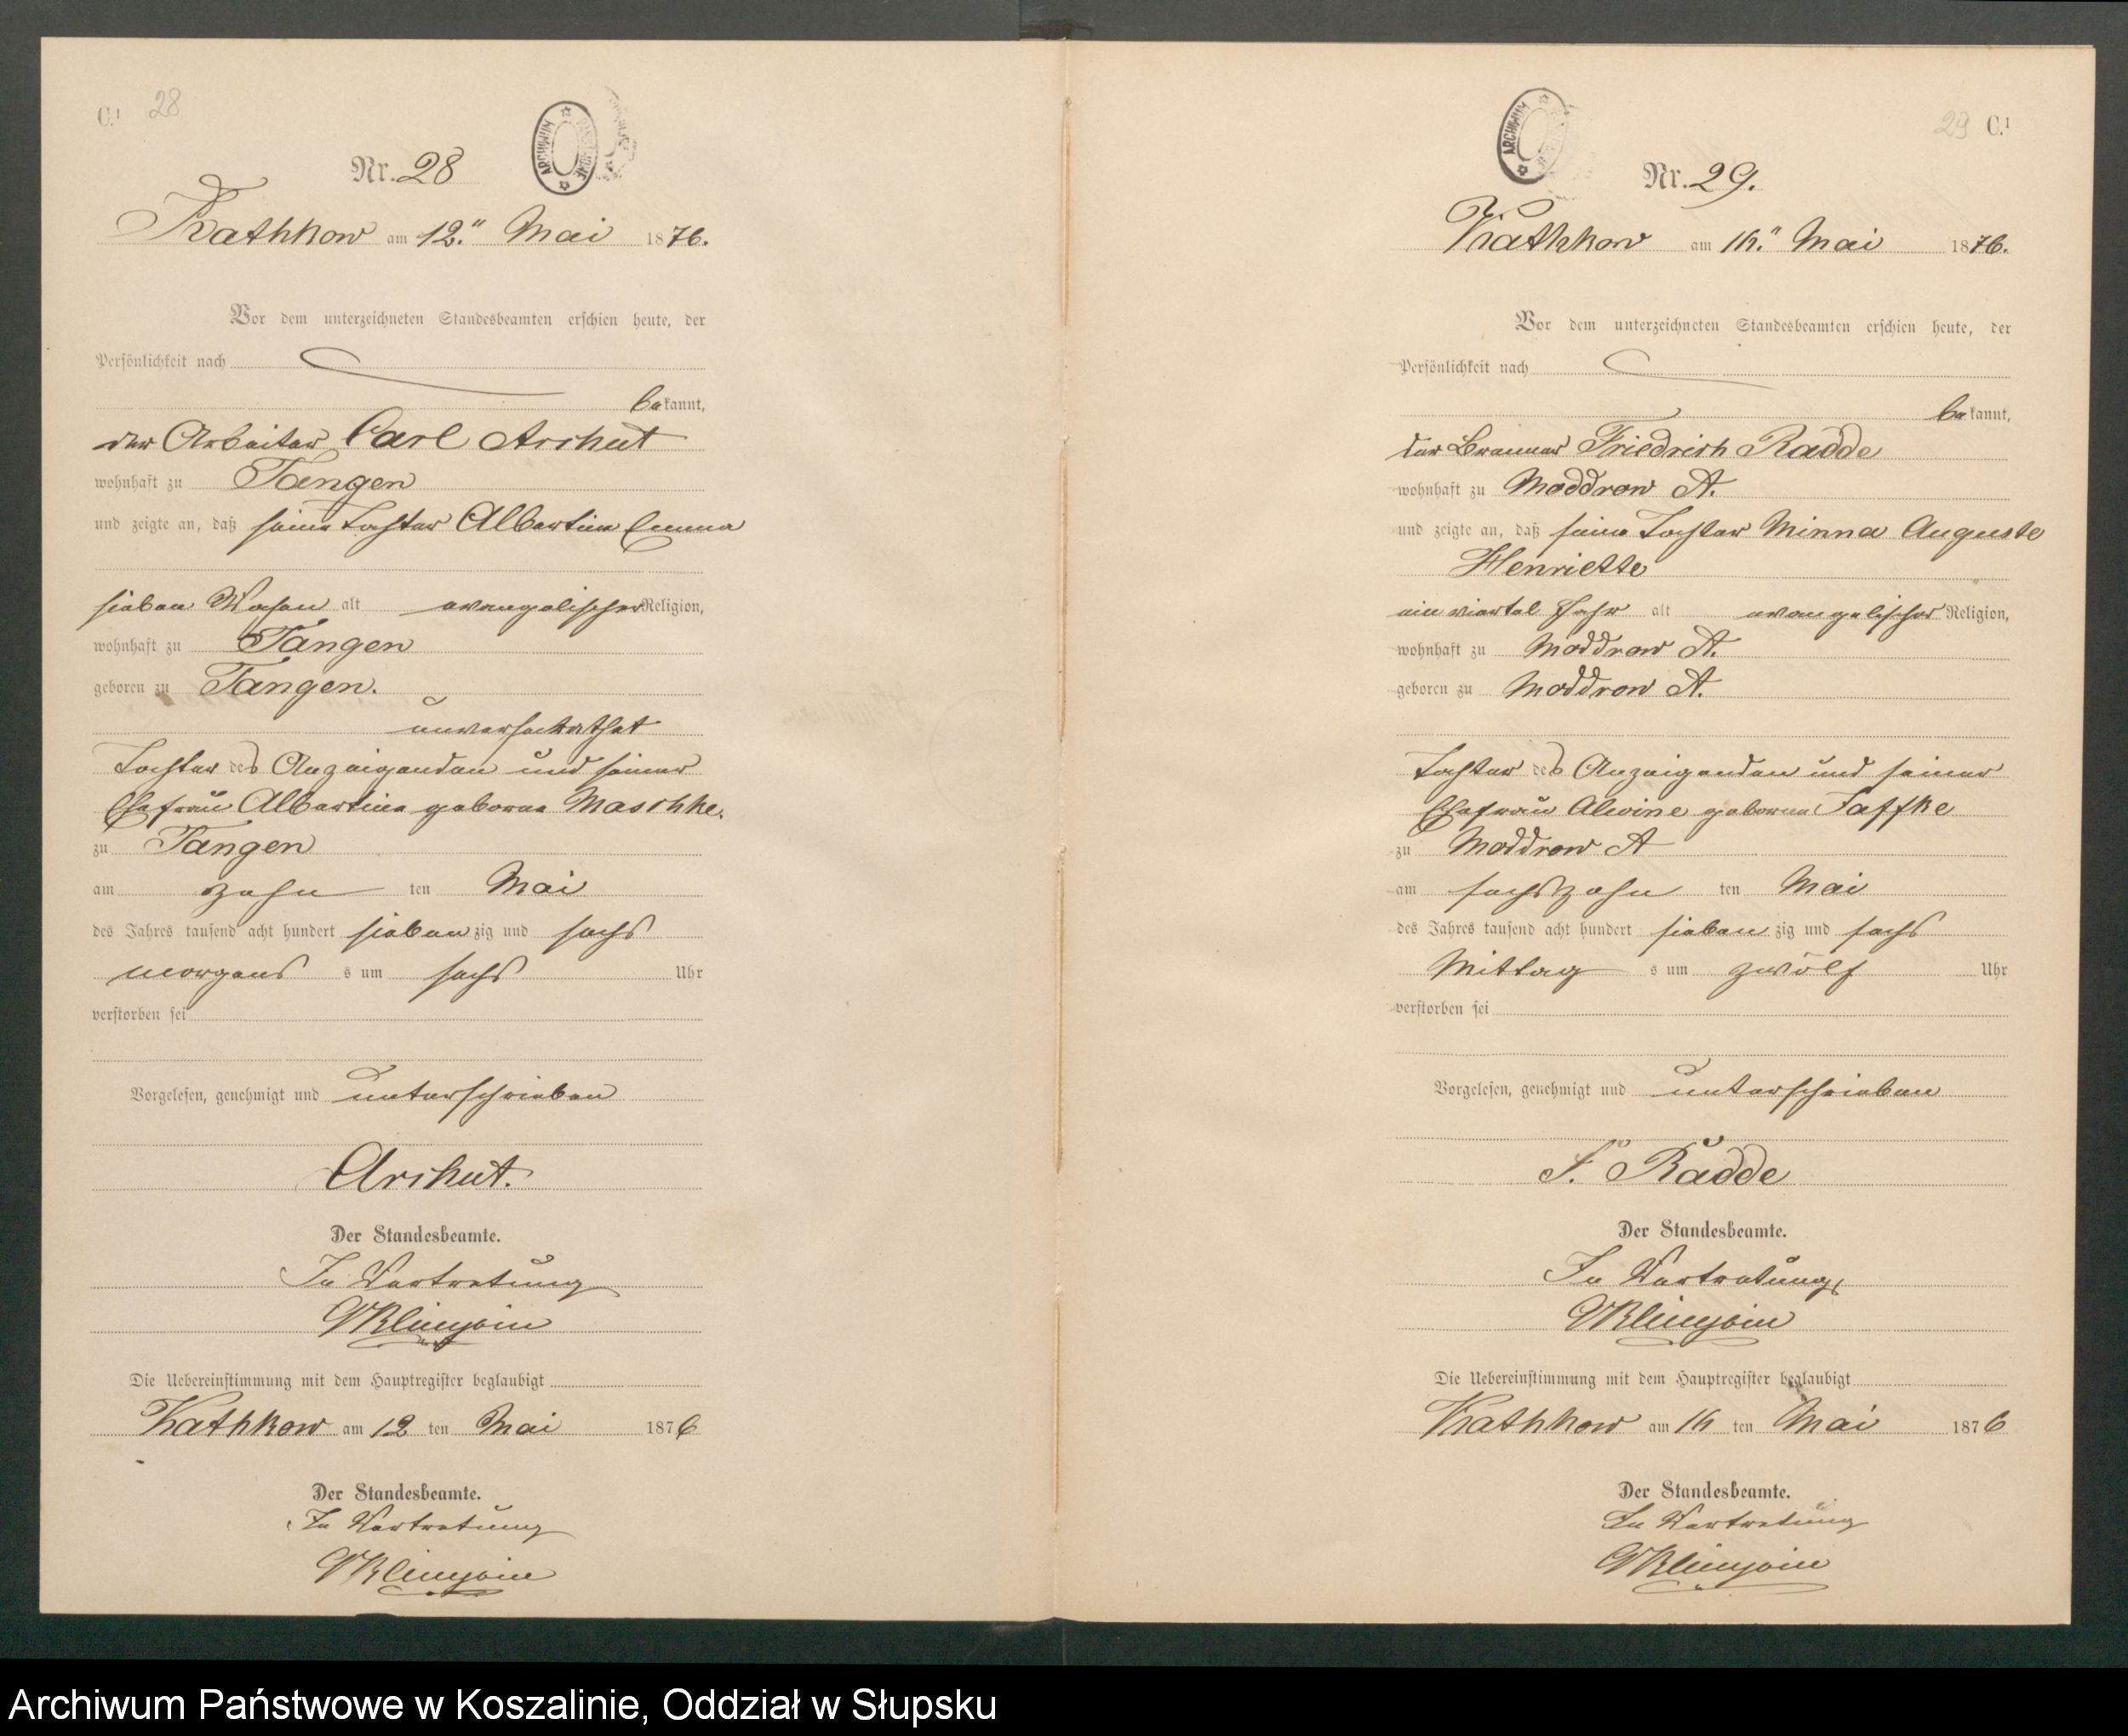 C.¹ 28
Nr. 28
ARCHIWUM PAŃSTWOWE
Kathkow am 12." Mai 1876.
Vor dem unterzeichneten Standesbeamten erschien heute, der
Persönlichkeit nach
bekannt,
der Arbeiter Carl Archut
wohnhaft zu Tangen
und zeigte an, daß seine Tochter Albertine Emma
sieben Wochen alt evangelischer Religion,
wohnhaft zu Tangen
geboren zu Tangen.
unverheirathet
Tochter des Anzeigenden und seiner
Ehefrau Albertine geborne Maschke.
zu Tangen
am zehn ten Mai
des Jahres tausend acht hundert sieben zig und sechs
morgens s um sechs Uhr
verstorben sei
Vorgelesen, genehmigt und unterschrieben
Archut.
Der Standesbeamte.
In Vertretung
Die Uebereinstimmung mit dem Hauptregister beglaubigt
Kathkow am 12 ten Mai 1876
Der Standesbeamte.
In Vertretung
29 C.¹
ARCHIWUM
Nr. 29.
Kathkow am 16." Mai 1876.
Vor dem unterzeichneten Standesbeamten erschien heute, der
Persönlichkeit nach
bekannt,
der Brenner Friedrich Radde
wohnhaft zu Moddrow A.
und zeigte an, daß seine Tochter Minna Auguste
Henriette
ein viertel Jahr alt evangelischer Religion,
wohnhaft zu Moddrow A.
geboren zu Moddrow A.
Tochter des Anzeigenden und seiner
Ehefrau Alwine geborne Jaffke
zu Moddrow A
am sechszehn ten Mai
des Jahres tausend acht hundert sieben zig und sechs
Mittag s um zwölf Uhr
verstorben sei
Vorgelesen, genehmigt und unterschrieben
F. Radde
Der Standesbeamte.
In Vertretung
Die Uebereinstimmung mit dem Hauptregister beglaubigt
Kathkow am 16 ten Mai 1876
Der Standesbeamte.
In Vertretung
Archiwum Państwowe w Koszalinie, Oddział w Słupsku